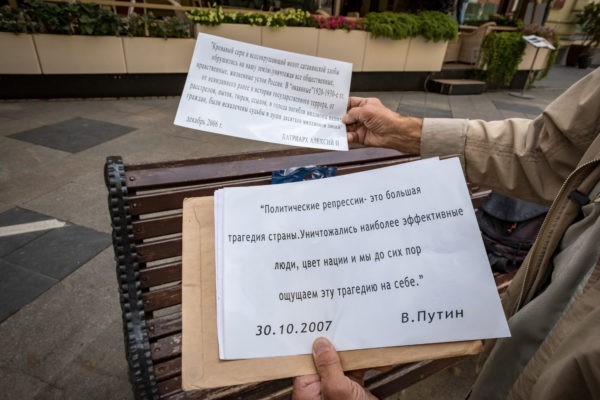 "Кровавый серп и всесокрушающий молот сатанинской злобы
обрушились на нашу землю, уничтожая все общественные,
нравственные, жизненные устои России. В 1920-1930-е гг.
от невиданного ранее в истории государственного террора, от
расстрелов, пыток, тюрем, ссылок, и голода погибли миллионы
граждан, были искалечены судьбы и души десятков миллионов
декабрь 2006 г.
ПАТРИАРХ АЛЕКСИЙ II
"Политические репрессии- это большая
трагедия страны.Уничтожались наиболее эффективные
люди, цвет нации и мы до сих пор
ощущаем эту трагедию на себе."
30.10.2007
В.Путин